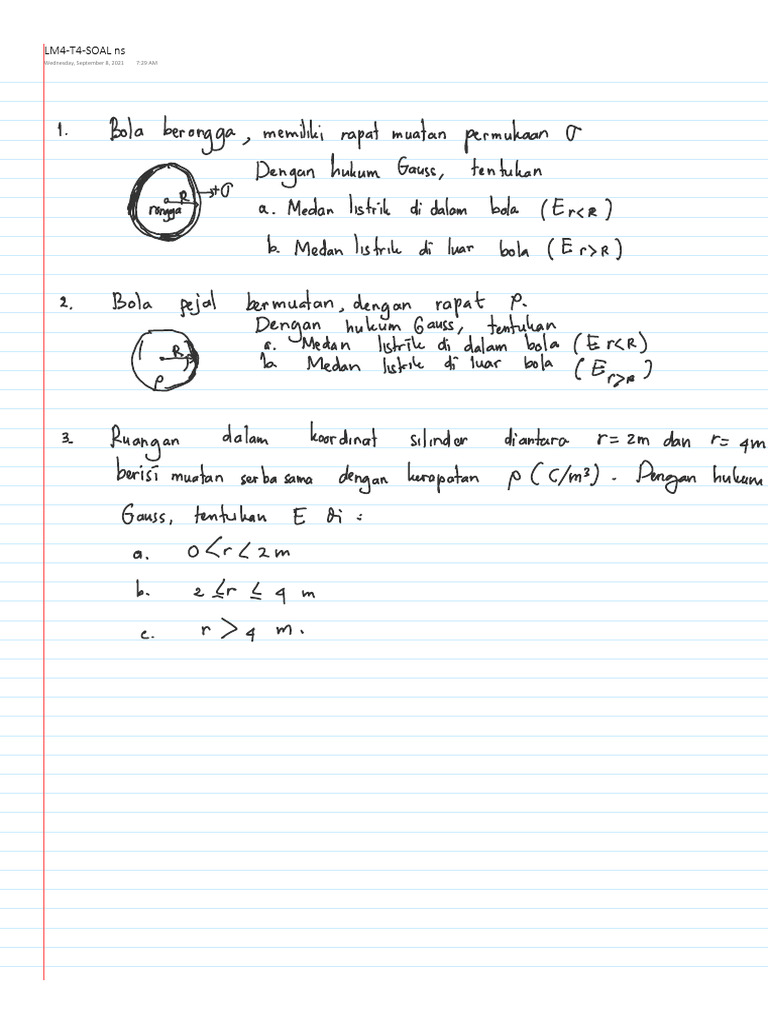 LM4-T4-SOAL ns
Wednesday, September 8, 2021 7:29 AM
1. Bola berongga, memiliki rapat muatan permukaan σ
Dengan hukum Gauss, tentukan
R → +σ
rongga
a. Medan listrik di dalam bola (E r<R)
b. Medan listrik di luar bola (E r>R)
2. Bola pejal bermuatan, dengan rapat ρ.
Dengan hukum Gauss, tentukan
R
ρ
a. Medan listrik di dalam bola (E r<R)
b. Medan listrik di luar bola (E r>R)
3. Ruangan dalam koordinat silinder diantara r = 2m dan r = 4m
berisi muatan serba sama dengan kerapatan ρ (C/m³). Dengan hukum
Gauss, tentukan E di :
a. 0 < r < 2 m
b. 2 ≤ r ≤ 4 m
c. r > 4 m.